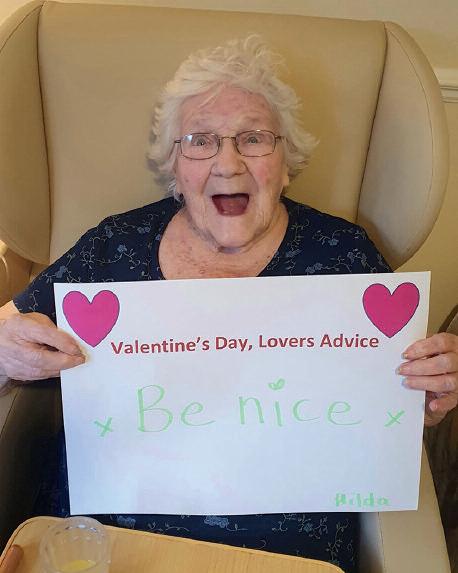 Valentine's Day, Lovers Advice
x Be nice x
Hilda